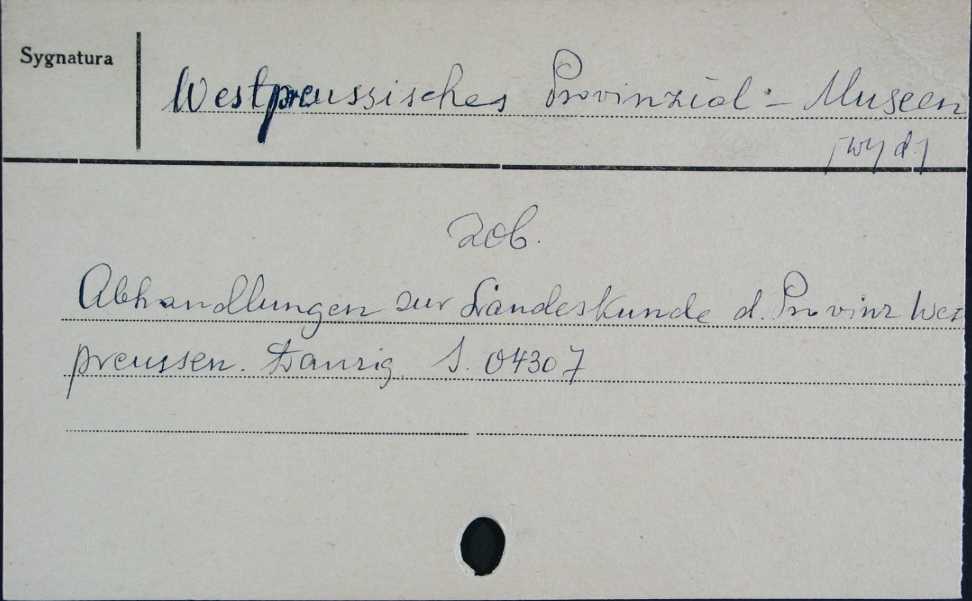 Sygnatura
Westpreussisches Provinzial - Museen
[wyd]
Zob.
Abhandlungen zur Landeskunde d. Provinz Wes
preussen. Danzig. S. 04307